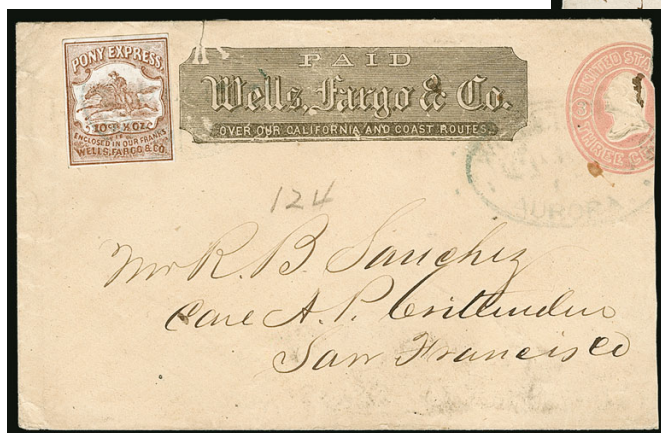 PONY EXPRESS
10 CTS ½ OZ
IF
ENCLOSED IN OUR FRANKS
WELLS, FARGO & CO.
PAID
Wells, Fargo & Co.
OVER OUR CALIFORNIA AND COAST ROUTES.
UNITED STA
THREE CE
AURORA
124
Mr R. B. Sanchez
Care A. P. Crittenden
San Francisco